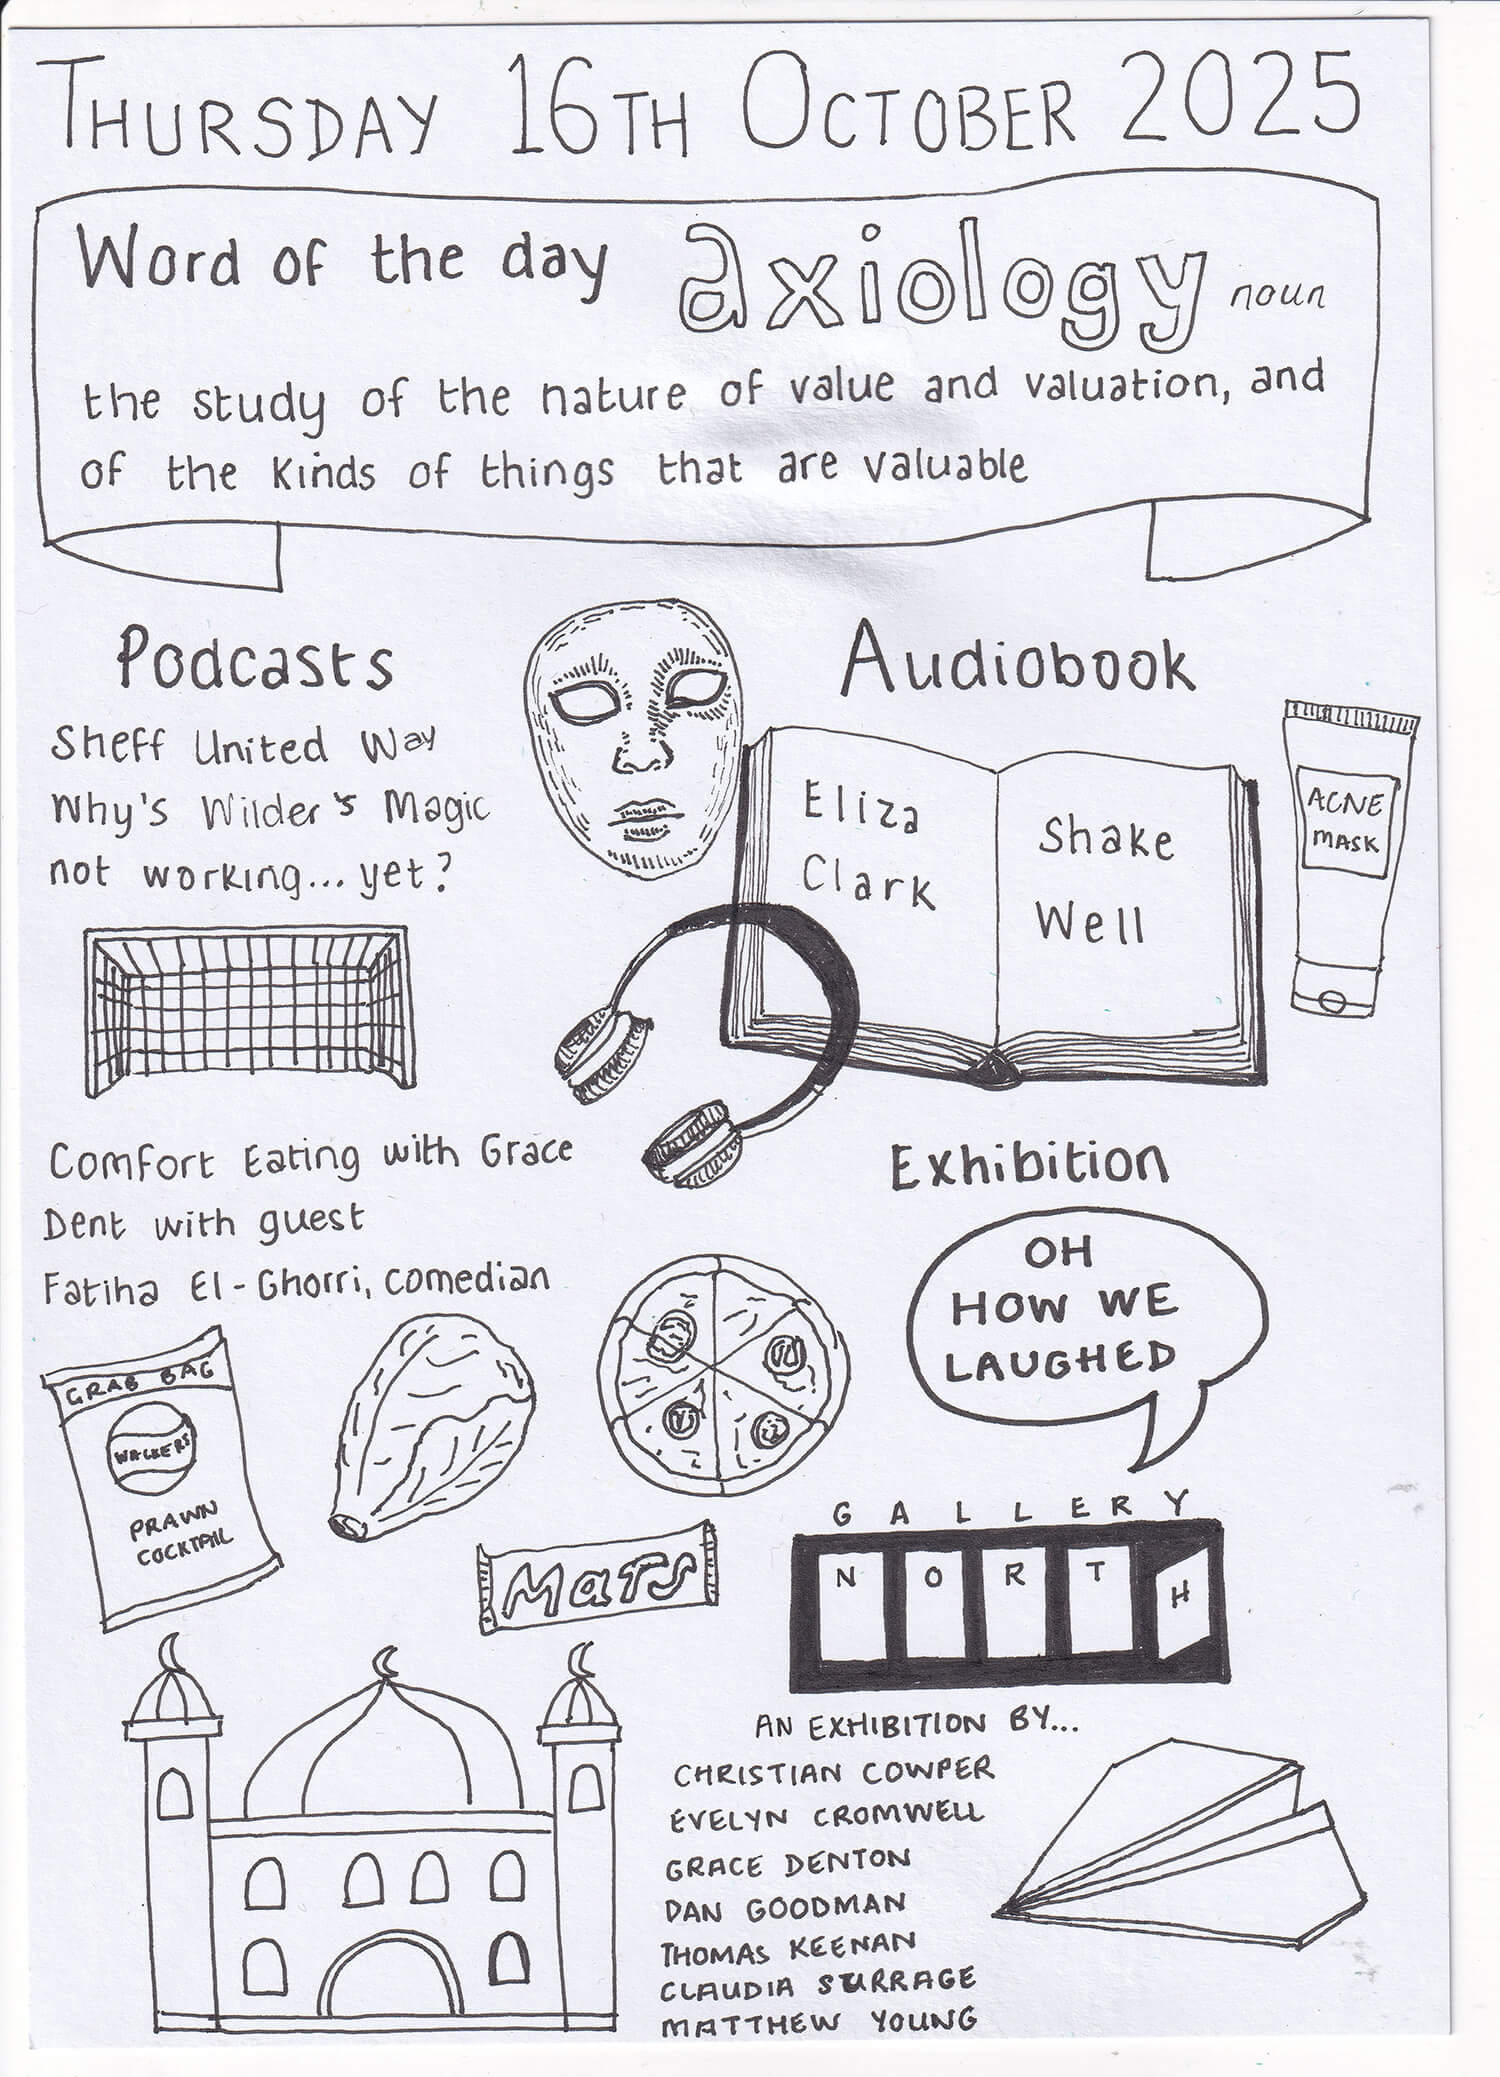 THURSDAY 16TH OCTOBER 2025
Word of the day axiology noun
the study of the nature of value and valuation, and
of the kinds of things that are valuable
Podcasts
Sheff United Way
Why's Wilder's Magic
not working... yet?
Audiobook
Eliza
Clark
Shake
Well
ACNE
MASK
Comfort Eating with Grace
Dent with guest
Fatiha El-Ghorri, comedian
GRAB BAG
WALKERS
PRAWN
COCKTAIL
Mars
Exhibition
OH
HOW WE
LAUGHED
GALLERY
NORTH
AN EXHIBITION BY...
CHRISTIAN COWPER
EVELYN CROMWELL
GRACE DENTON
DAN GOODMAN
THOMAS KEENAN
CLAUDIA SURRAGE
MATTHEW YOUNG